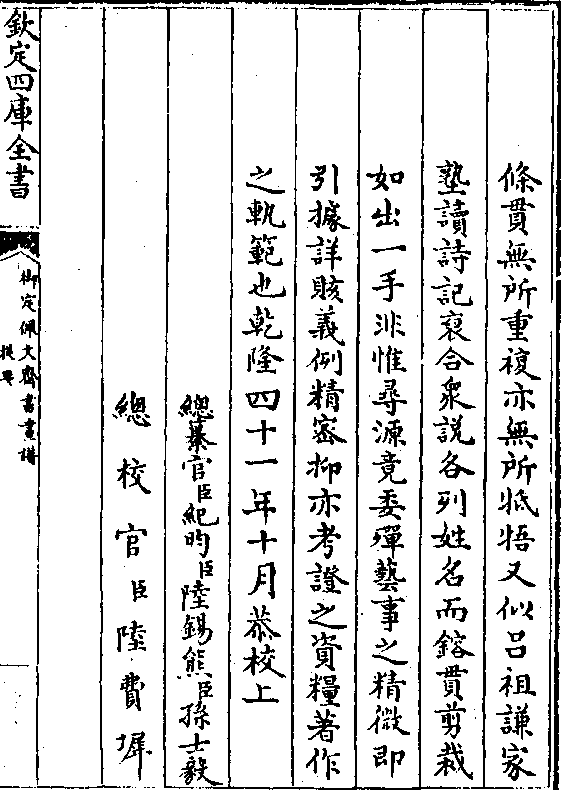 條貫無所重複亦無所牴牾又似吕祖謙家
塾讀詩記裒合衆說各列姓名而鎔貫剪裁
如出一手非惟尋源竟委殫藝事之精微即
引據詳賅義例精密抑亦考證之資糧著作
之軌範也乾隆四十一年十月恭校上
總纂官臣紀昀臣陸錫熊臣孫士毅
總校官臣陸費墀
欽定四庫全書
御定佩文齋書畫譜
提要